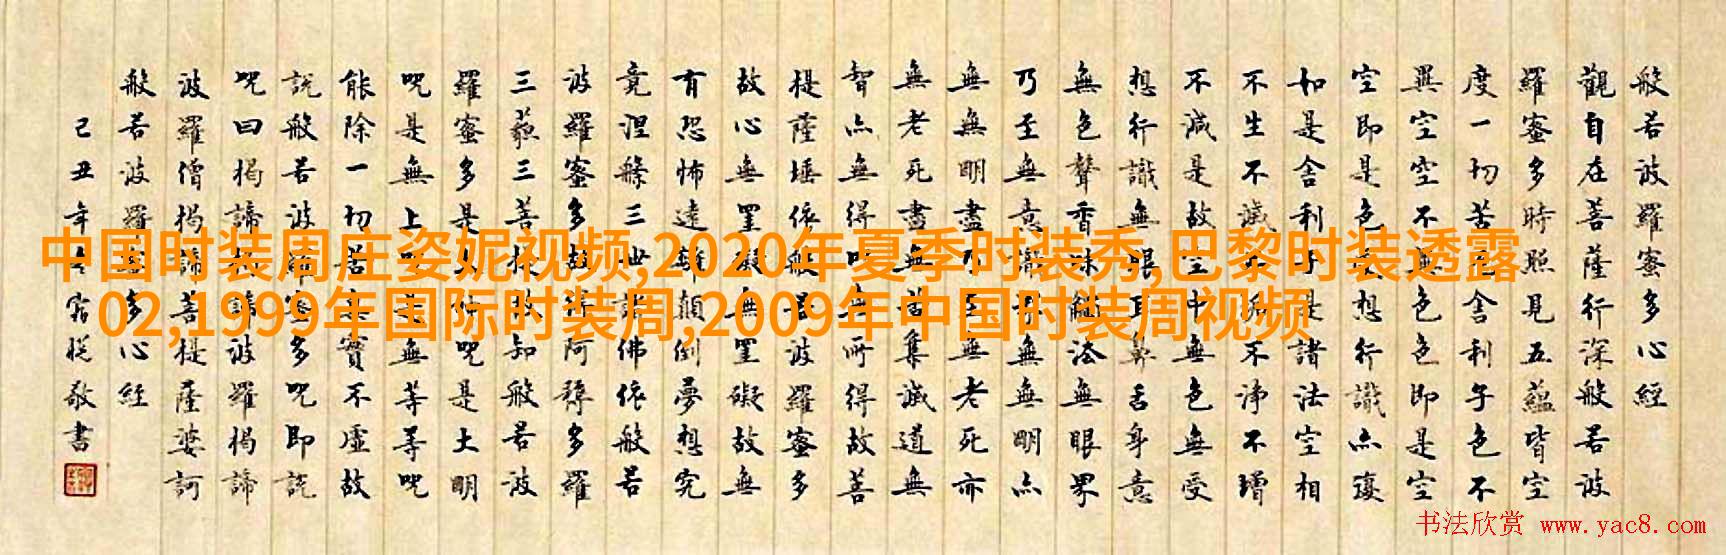 般若波羅蜜多心經
觀自在菩薩行深般若波
羅蜜多時照見五蘊皆空
度一切苦厄舍利子色不
異空空不異色色即是空
空即是色受想行識亦復
如是舍利子是諸法空相
不生不滅不垢不淨不增
不減是故空中無色無受
想行識無眼耳鼻舌身意
無色聲香味觸法無眼界
乃至無意識界無無明亦
無無明盡乃至無老死亦
無老死盡無苦集滅道無
智亦無得以無所得故菩
提薩埵依般若波羅蜜多
故心無罣礙無罣礙故無
有恐怖遠離顛倒夢想究
竟涅槃三世諸佛依般若
波羅蜜多故得阿耨多羅
三藐三菩提故知般若波
羅蜜多是大神咒是大明
咒是無上咒是無等等咒
能除一切苦真實不虛故
說般若波羅蜜多咒即說
咒曰揭諦揭諦波羅揭諦
波羅僧揭諦菩提薩婆訶
般若波羅蜜多心經
己丑年敬書
中国时装周庄姿妮视频,2020年夏季时装秀,巴黎时装透露
02,1999年国际时装周,2009年中国时装周视频
书法欣赏 www.yac8.com